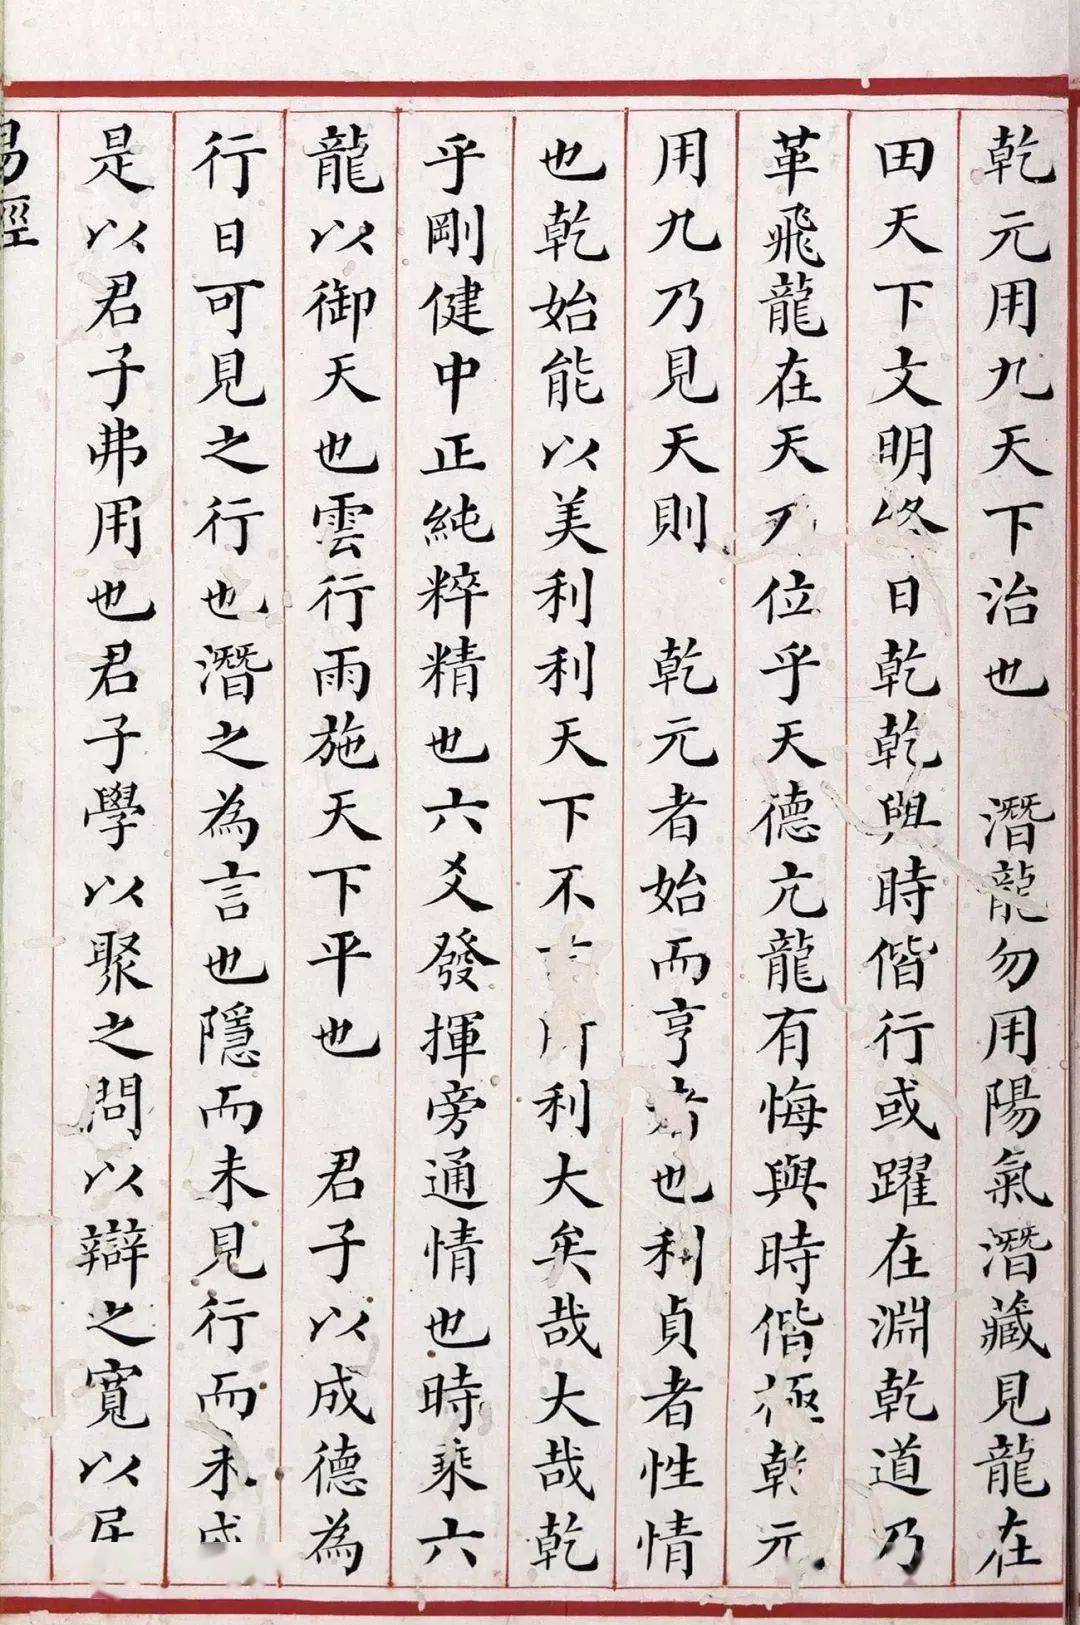 乾元用九天下治也 潛龍勿用陽氣潛藏見龍在
田天下文明終日乾乾與時偕行或躍在淵乾道乃
革飛龍在天乃位乎天德亢龍有悔與時偕極乾元
用九乃見天則 乾元者始而亨者也利貞者性情
也乾始能以美利利天下不言所利大矣哉大哉乾
乎剛健中正純粹精也六爻發揮旁通情也時乘六
龍以御天也雲行雨施天下平也 君子以成德為
行日可見之行也潛之為言也隱而未見行而未成
是以君子弗用也君子學以聚之問以辯之寬以居
易經